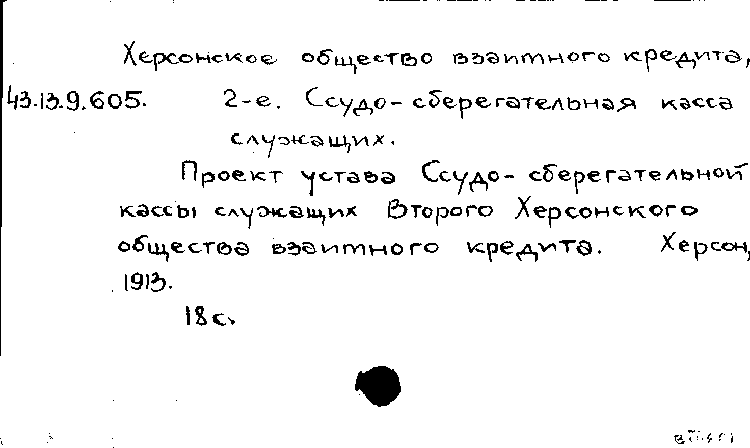 Херсонское общество взаимного кредита,
43.13.9.605. 2-е. Ссудо-сберегательная касса
служащих.
Проект устава Ссудо-сберегательной
кассы служащих Второго Херсонского
общества взаимного кредита. Херсон,
1913.
18 с.